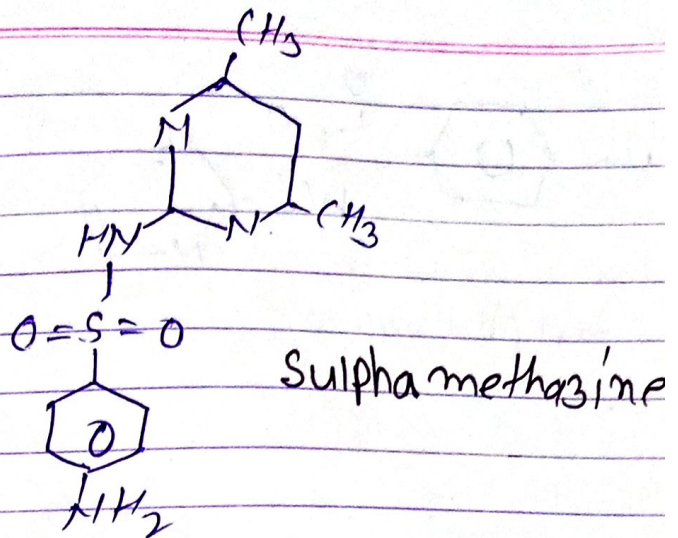 CH3
N
N CH3
HN
O=S=O
Sulphamethazine
O
NH2